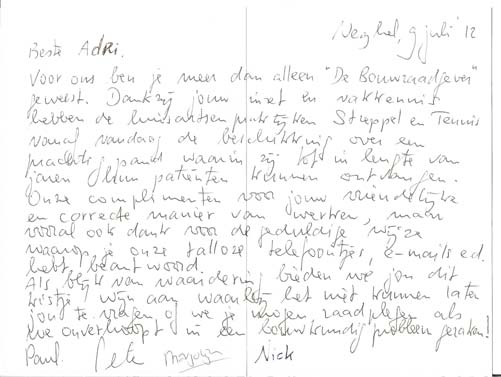 Veghel, 9 juli '12
Beste Adri,
Voor ons ben je meer dan alleen "De Bouwraadgever"
geweest. Dankzij jouw inzet en vakkennis
hebben de huisartsenpraktijken Struppel en Teunis
vanaf vandaag de beschikking over een
prachtig pand waarin zij tot in lengte van
jaren hun patiënten kunnen ontvangen.
Onze complimenten voor jouw vriendelijke
en correcte manier van werken, maar
vooral ook dank voor de geduldige wijze
waarop je onze talloze telefoontjes, e-mails e.d.
hebt beantwoord.
Als blijk van waardering bieden we jou dit
kistje wijn aan waarbij het niet kunnen laten
jou te vragen of we je mogen raadplegen als
we onverhoopt in een bouwkundig probleem geraken!
Paul Pete Marjolijn Nick